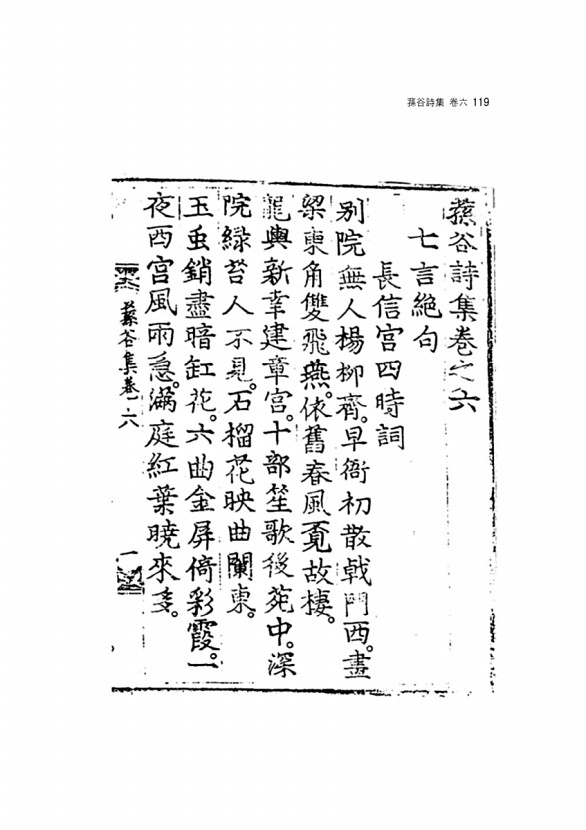 蓀谷詩集 卷六 119
蓀谷詩集卷之六
七言絶句
長信宮四時詞
别院無人楊柳齊。早衙初散戟門西。畫
梁東角雙飛燕。依舊春風覔故棲。
龍輿新幸建章宮。十部笙歌後苑中。深
院綠苔人不見。石榴花映曲闌東。
玉虫銷盡暗缸花。六曲金屛倚彩霞。一
夜西宮風雨急。滿庭紅葉曉來多。
蓀谷集卷六
一